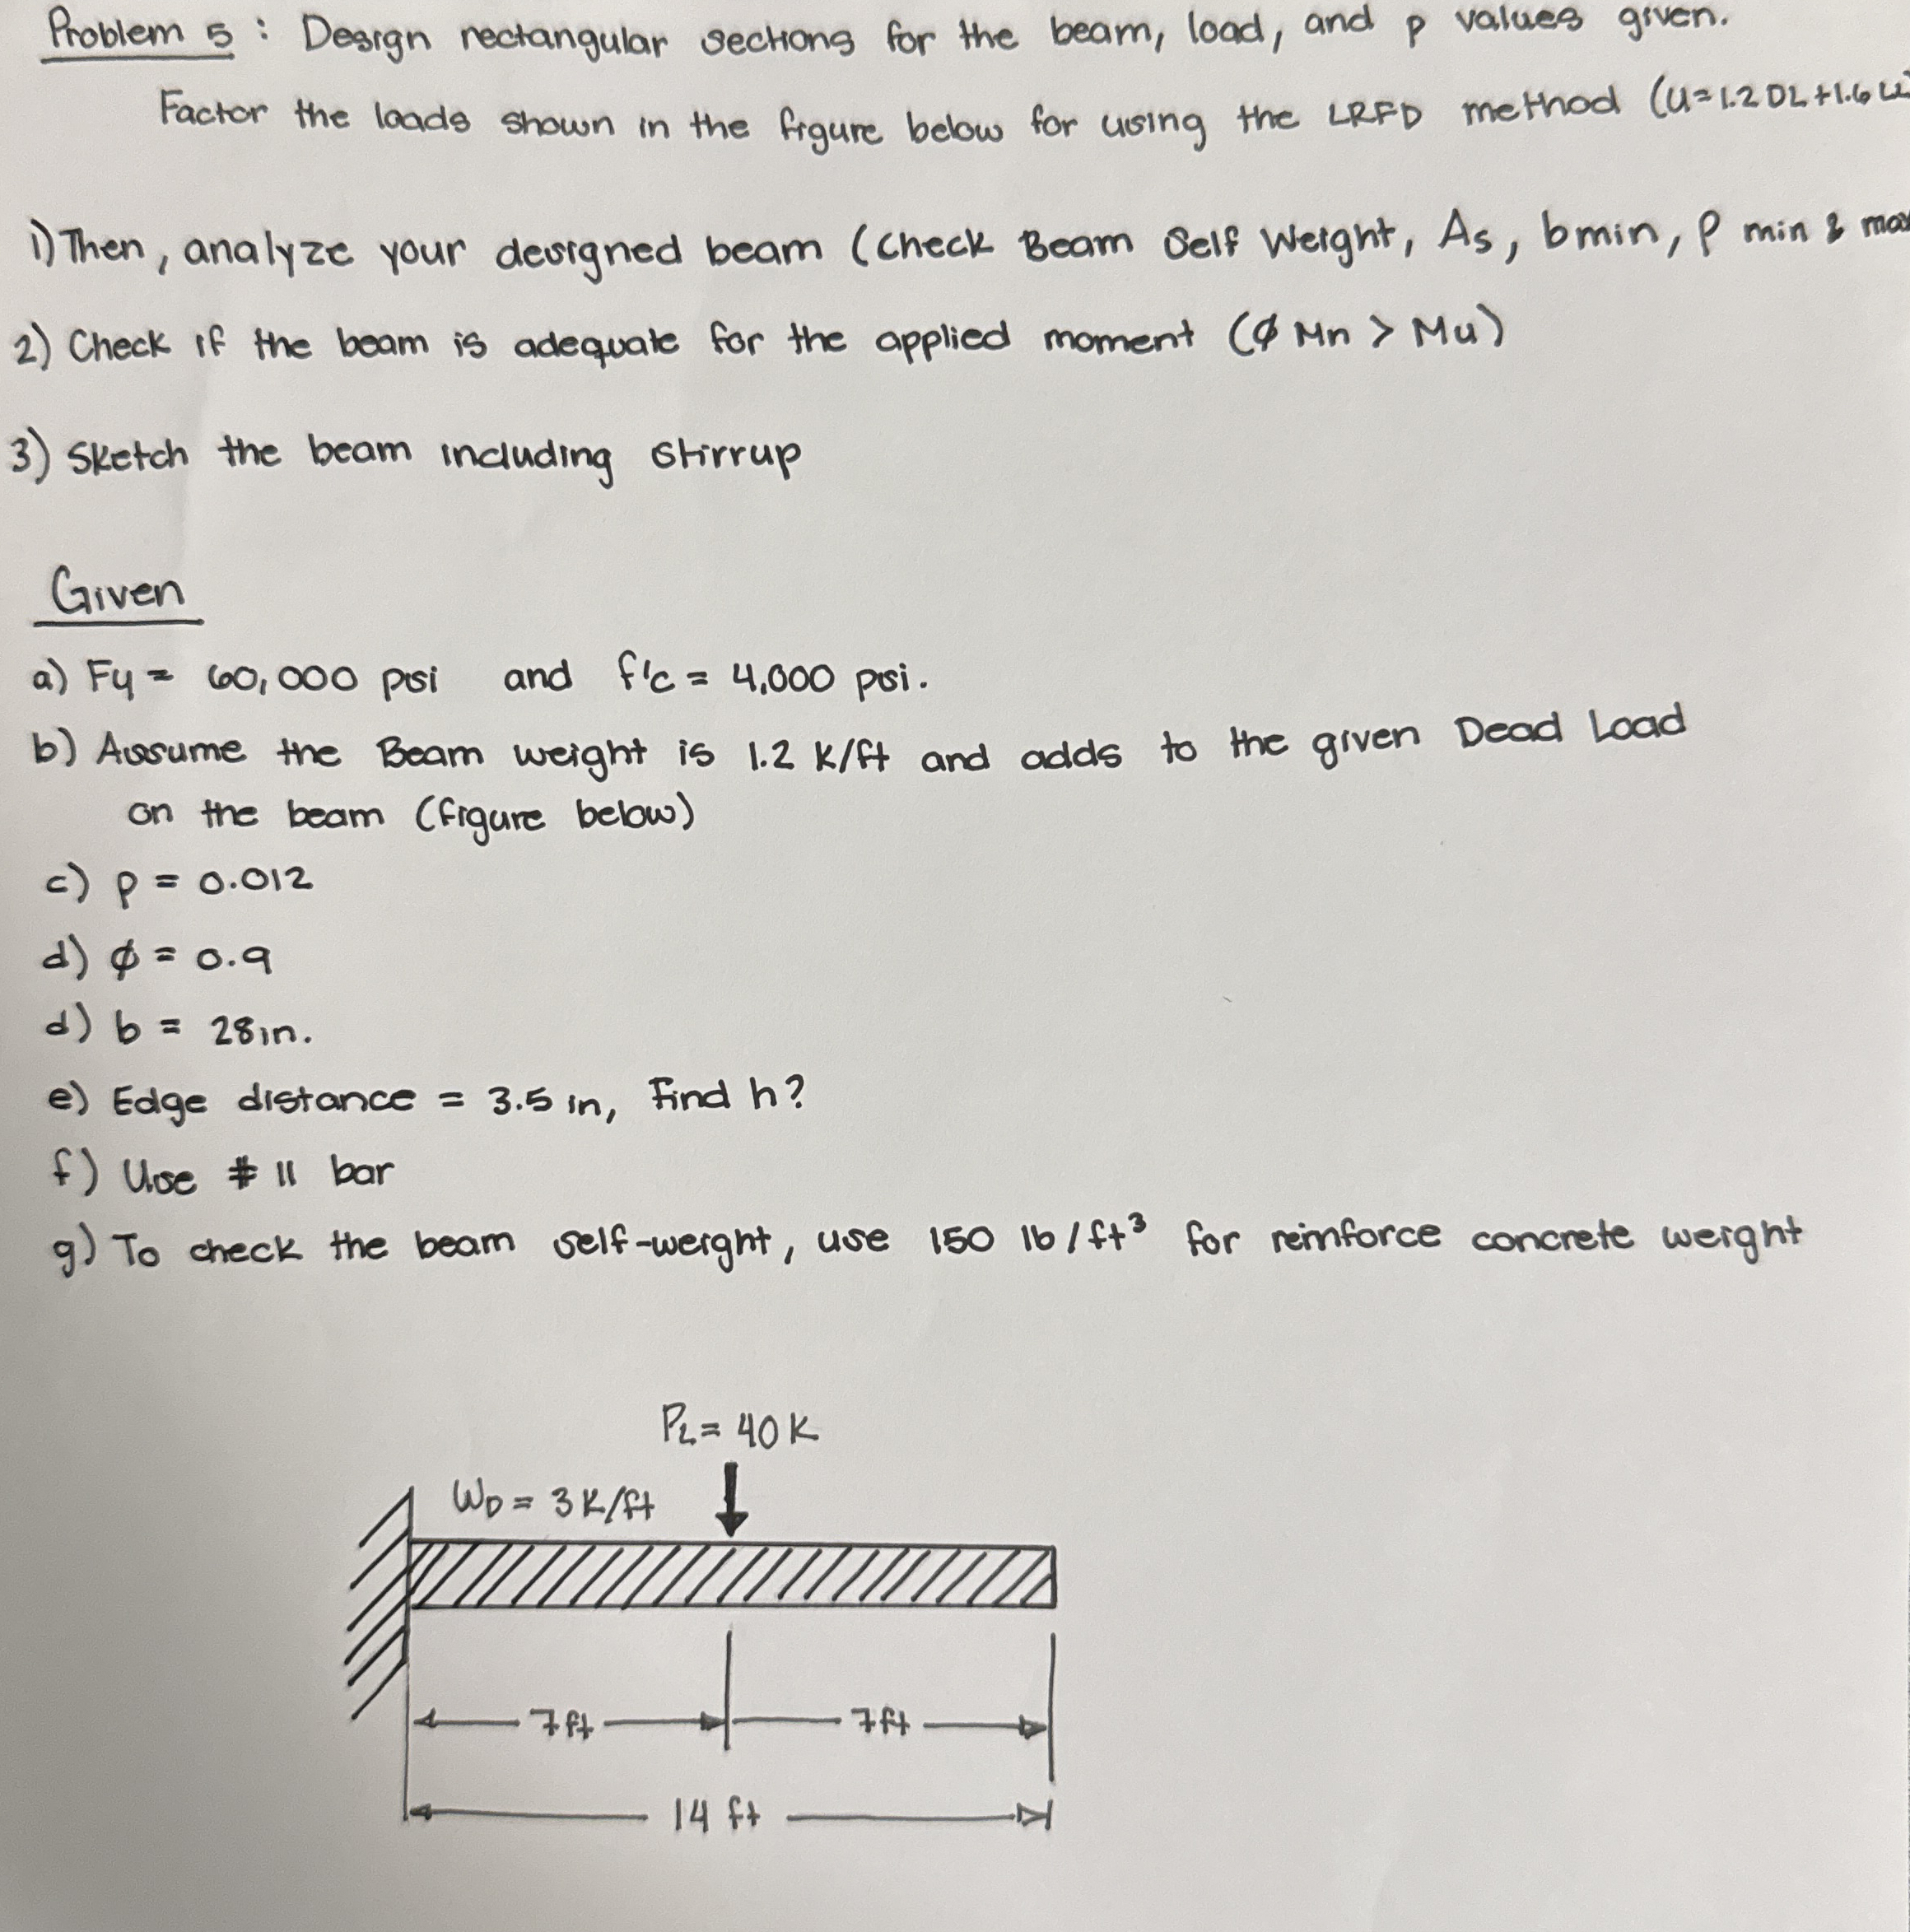 Problem 5 : Design rectangular sections for the beam, load, and ρ values given.
Factor the loads shown in the figure below for using the LRFD method (U=1.2DL+1.6LL
1) Then, analyze your designed beam (Check Beam Self Weight, As, bmin, ρ min & max
2) Check if the beam is adequate for the applied moment (Ø Mn > Mu)
3) Sketch the beam including stirrup
Given
a) Fy = 60,000 psi and f'c = 4,000 psi.
b) Assume the Beam weight is 1.2 K/ft and adds to the given Dead Load
on the beam (figure below)
c) ρ = 0.012
d) Ø = 0.9
d) b = 28in.
e) Edge distance = 3.5 in, Find h?
f) Use # 11 bar
g) To check the beam self-weight, use 150 lb/ft³ for reinforce concrete weight
PL= 40 K
WD = 3 K/ft
7ft 7ft
14 ft